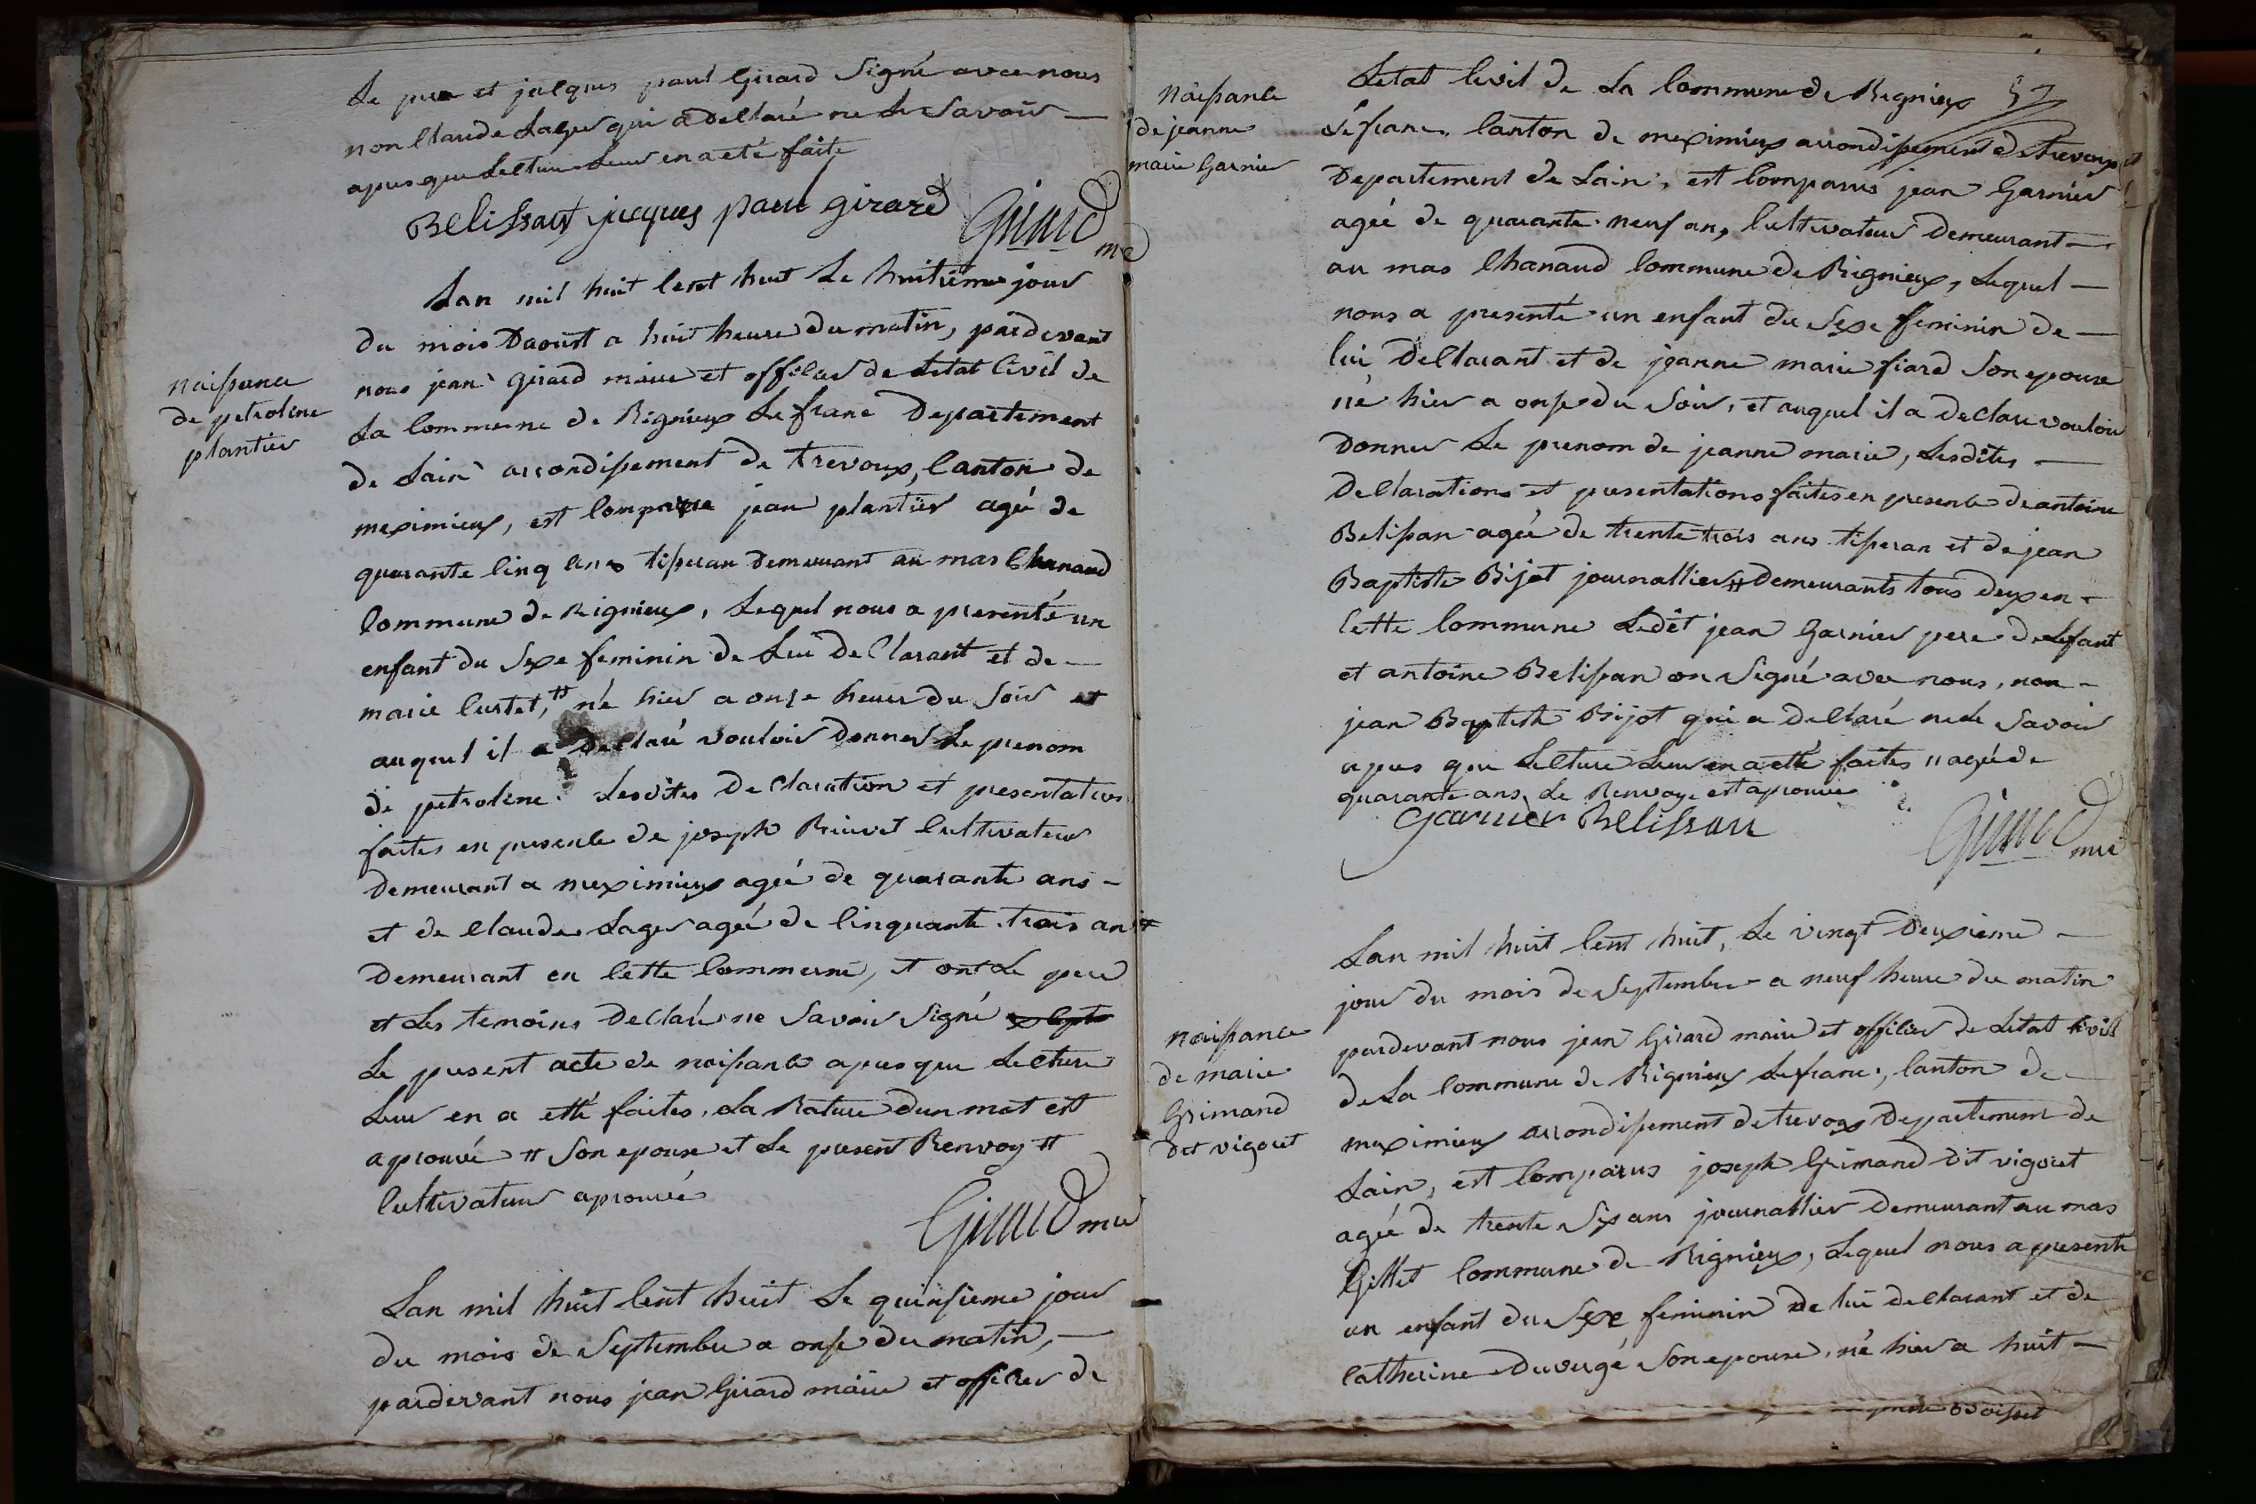 Le pere et jacques paul Girard Signé avec nous
non Claude Lager qui a declaré ne le Savoir
apres que lecture leur en a eté faite
Belissan jacques paul girard Girard mre
naissance
de petroline
plantier
Lan mil huit Cent huit Le huitieme jour
du mois Daoust a huit heure du matin, pardevant
nous jean Girard maire et officier de Letat Civil de
La Commune de Rignieux Le franc Departement
de Lain arrondissement de trevoux, Canton de
meximieux, est Comparue jean plantier agé de
quarante Cinq ans tisseran Demeurant au mas Chanaud
Commune de Rignieux, Lequel nous a presenté un
enfant du Sexe feminin de Lui De Clarant et de
marie Custet, # né hier a onze heure du Soir et
auquel il a Declaré vouloir Donner Le prenom
de petroline. Lesdites De Claration et presentation
faites en presence de joseph Cultivateur
Demeurant a meximieux agé de quarante ans
et de Claude Lager agé de Cinquante trois an #
Demeurant en Cette Commune, et ont Le pere
et Les temoins Declaré ne Savoir Signé
Le present acte de naissance apres que Lecture
Leur en a etté faites. La Rature dun mot est
aprouvé # Son epouse et Le present Renvoy #
Cultivateur aprouvée
Girard mre
Lan mil huit Cent huit Le quinsieme jour
du mois de Septembre a onse du matin,
pardevant nous jean Girard maire et officier de
naissance
de jeanne
marie Garnier
Letat Civil de La Commune de Rignieux 52
Le franc. Canton de meximieux arrondissement de trevoux
Departement de Lain, est Comparus jean Garnier
agée de quarante neuf ans, Cultivateur Demeurant
au mas Chanaud Commune de Rignieux, Lequel
nous a presenté un enfant du Sexe feminin de
lui Declarant et de jeanne marie fiard Son epouse
né hier a onse du Soir, et auquel il a Declaré vouloir
Donner Le prenom de jeanne marie, Lesdites
Declarations et presentations faites en presence de antoine
Belissan agée de trente trois ans tisseran et de jean
Baptiste Bijot journallier # Demeurants tous deux en
Cette Commune Ledit jean Garnier pere de Lefant
et antoine Belissan on Signé avec nous, non
jean Baptiste Bijot qui a Declaré ne le Savoir
apres que Lecture Leur en a etté faites " agée de
quarante ans, Le Renvoye est aprouvé
Garnier Belissan Girard mre
naissance
de marie
Grimand
dit vigoret
Lan mil huit Cent huit, Le vingt Deuxieme
jour du mois de Septembre a neuf heure du matin
pardevant nous jean Girard maire et officier de Letat Civill
de La Commune de Rignieux Lefranc, Canton de
meximieux arrondissement de trevoux Departement de
Lain, est Comparus joseph Grimand dit vigoret
agée de trente Six ans journallier Demeurant au mas
Gillet Commune de Rignieux, Lequel nous a presenté
un enfant du Sexe feminin de lui declarant et de
Catherine Duvergé Son epouse, né hier a huit